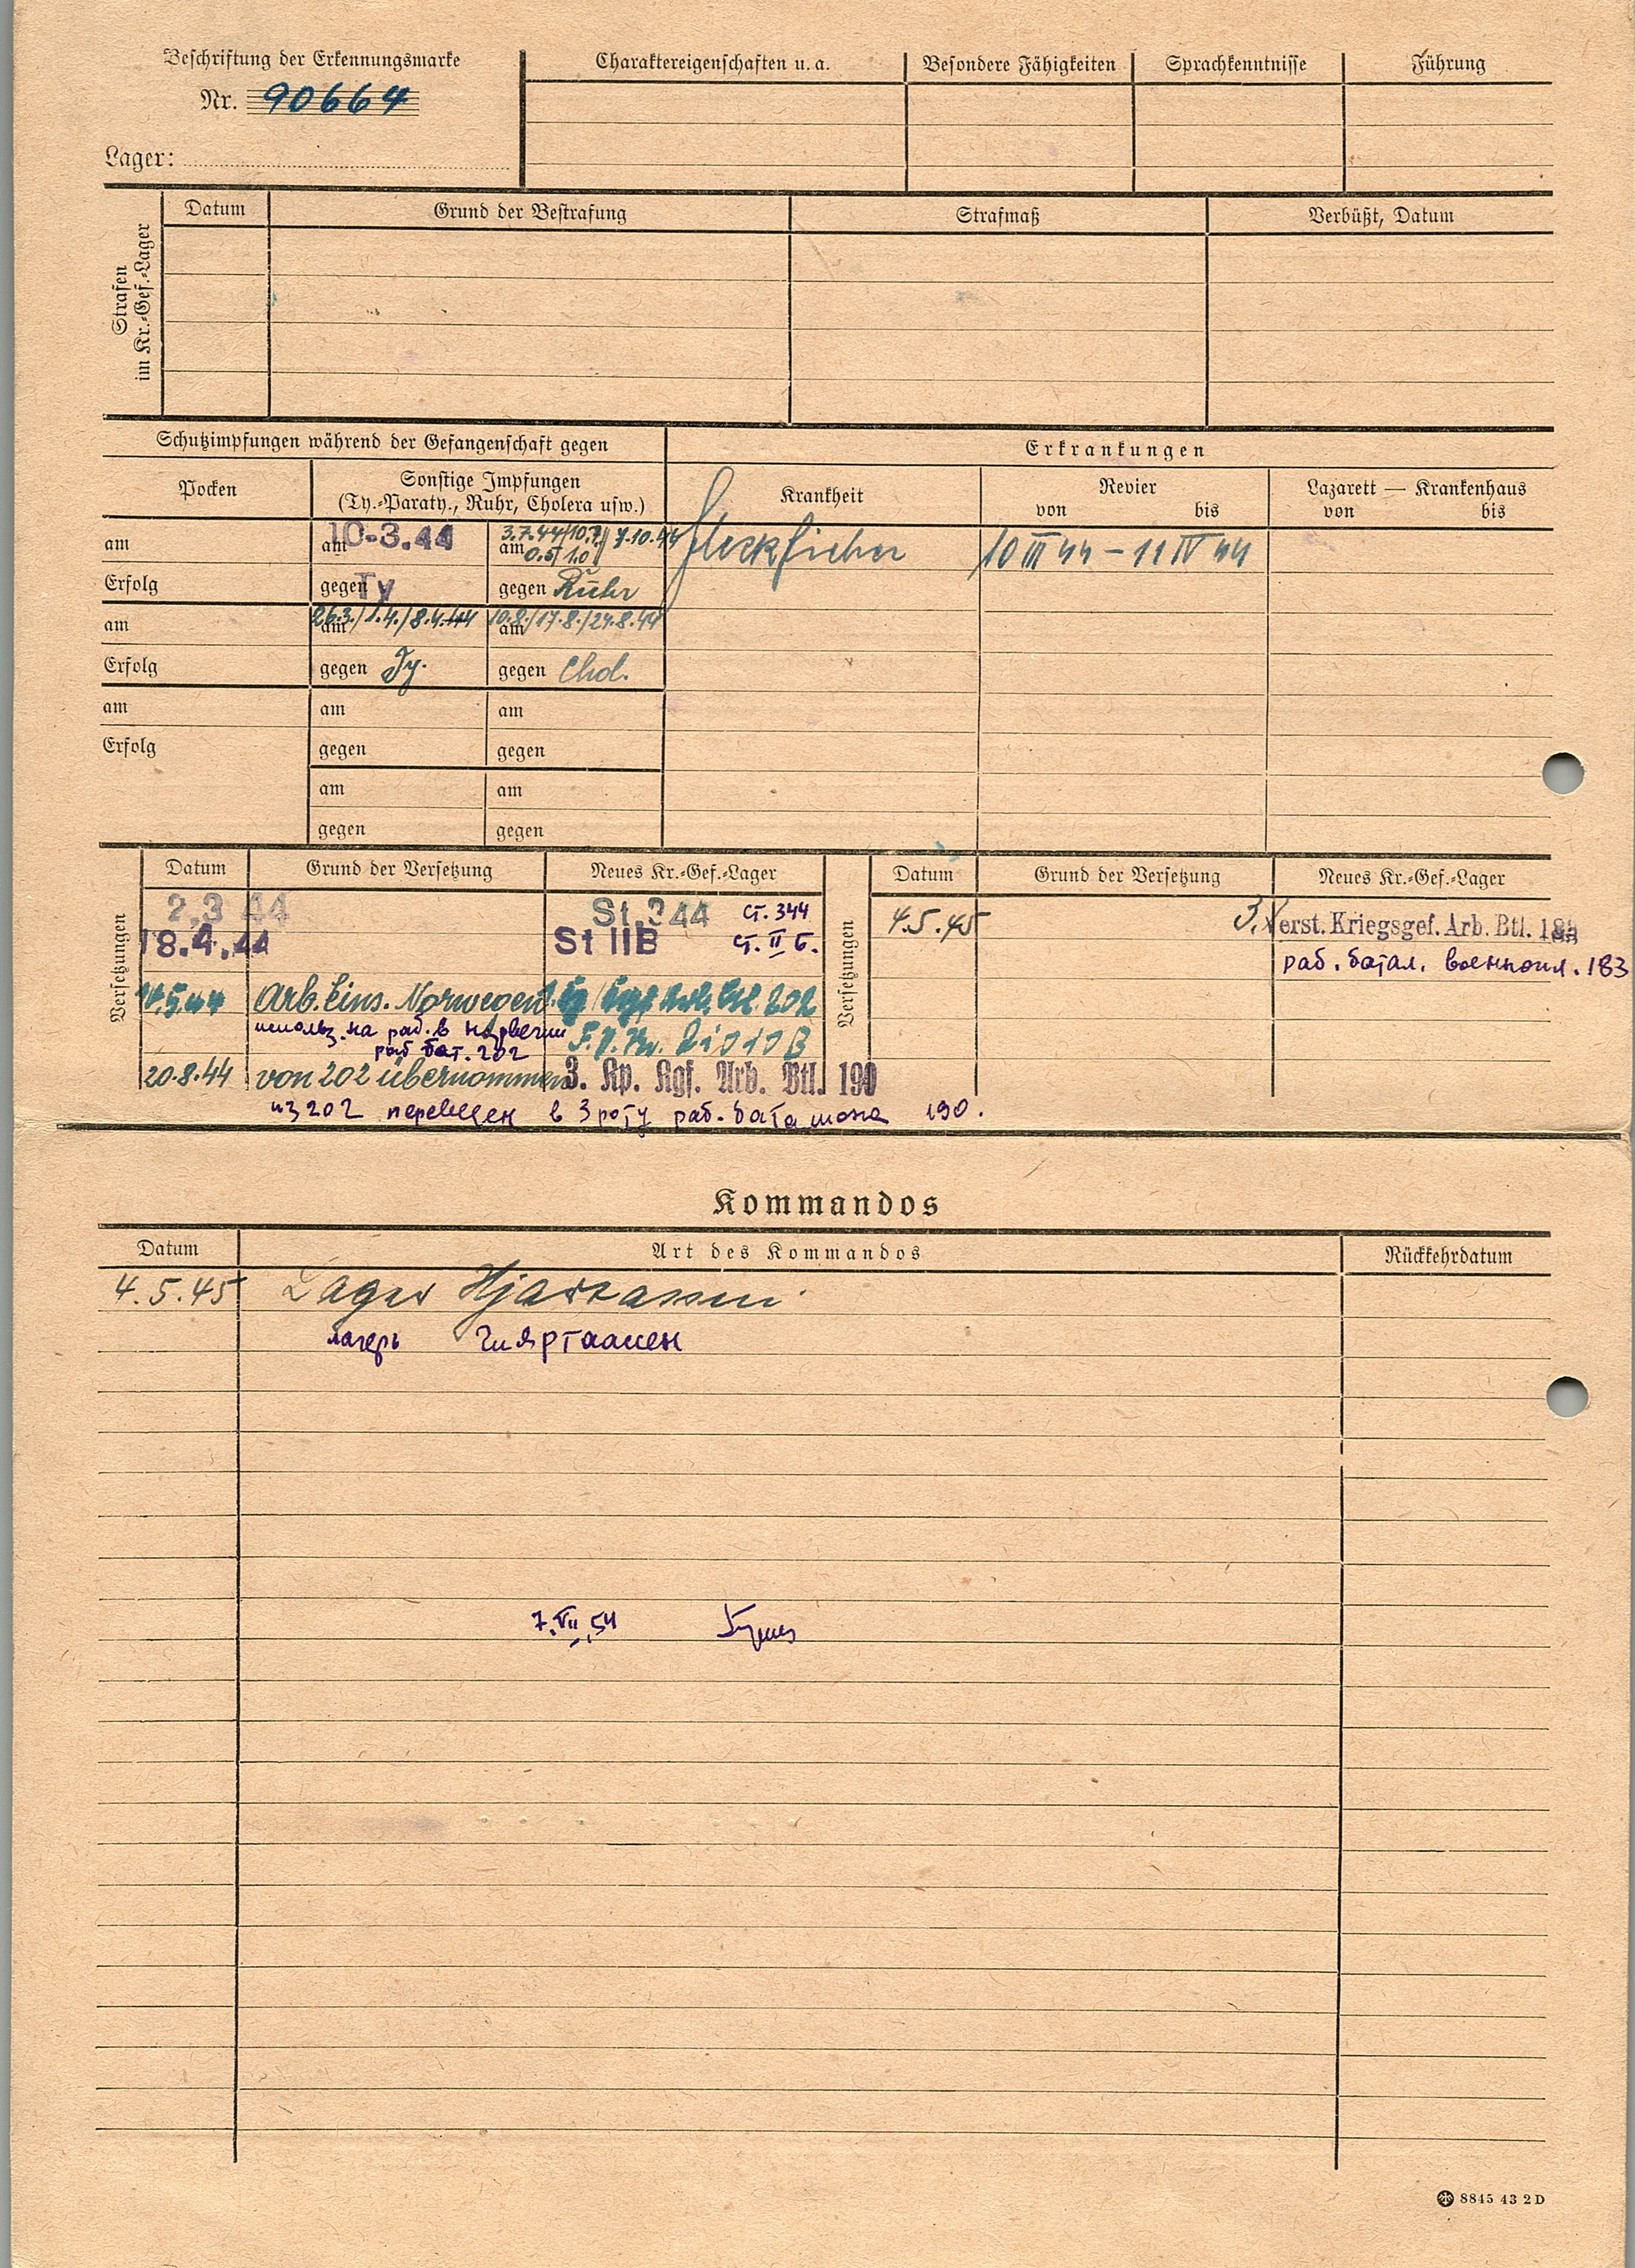 Beschriftung der Erkennungsmarke
Nr. 90664
Lager:
Charaktereigenschaften u. a. Besondere Fähigkeiten Sprachkenntnisse Führung
Strafen
im Kr.-Gef.-Lager
Datum Grund der Bestrafung Strafmaß Verbüßt, Datum
Schutzimpfungen während der Gefangenschaft gegen
Erkrankungen
Pocken
Sonstige Impfungen
(Ty.-Paraty., Ruhr, Cholera usw.)
Krankheit
Revier
von bis
Lazarett — Krankenhaus
von bis
am am 10-3.44 am 3.7.44/10.7./ 7.10.44
0.5/1.0
Fleckfieber 10 III 44 – 11 IV 44
Erfolg gegen Ty gegen Ruhr
am am 26.3./1.4./8.4.44 am 10.8./17.8./24.8.44
Erfolg gegen Ty. gegen Chol.
am am am
Erfolg gegen gegen
am am
gegen gegen
Versetzungen
Datum Grund der Versetzung Neues Kr.-Gef.-Lager
2.3 44 St. 344 ст. 344
18.4.44 St IIB ст. II Б.
Arb. Eins. Norwegen 202
использ. на раб. в Норвегии
раб бат. 202
20.8.44 von 202 übernommen 3. Kp. Kgf. Arb. Btl. 190
из 202 переведен в 3 роту раб. баталиона 190.
Versetzungen
Datum Grund der Versetzung Neues Kr.-Gef.-Lager
4.5.45 3. Verst. Kriegsgef. Arb. Btl. 183
раб. батал. военнопл. 183
Kommandos
Datum Art des Kommandos Rückkehrdatum
4.5.45 Lager
лагерь
7.VII.54
8845 43 2 D